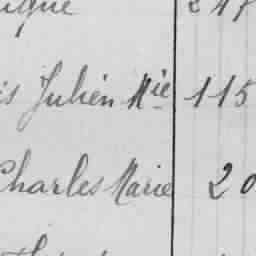 is Julien Mie 115
Charles Marie 20